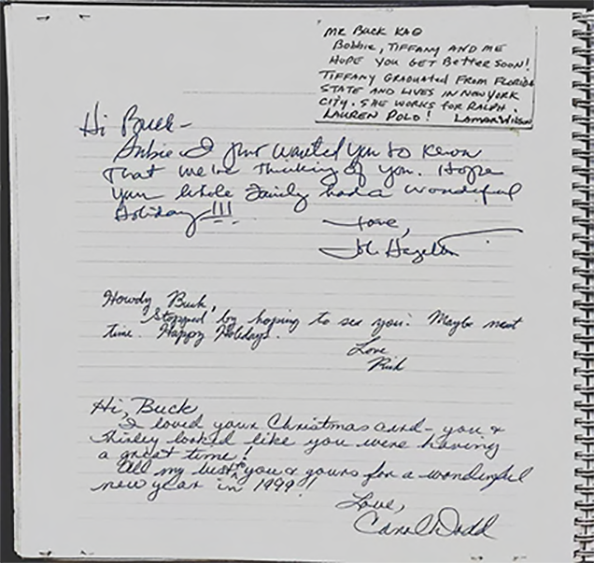 MR BUCK KAO
Bobbie, TIFFANY AND ME
HOPE YOU GET BETTER SOON!
TIFFANY GRADUATED FROM FLORIDA
STATE AND LIVES IN NEW YORK
CITY. SHE WORKS FOR RALPH
LAUREN POLO! LAMAR WILSON
Hi Buck-
& I just wanted you to know
that we're thinking of you. Hope
your whole family had a wonderful
Holiday!!!
Love,
Howdy Buck,
Stopped by hoping to see you. Maybe next
time. Happy Holidays.
Love
Rick
Hi, Buck
I loved your Christmas card - you &
Shirley looked like you were having
a great time!
All my best to you & yours for a wonderful
new year in 1999!
Love,
Carol Dodd